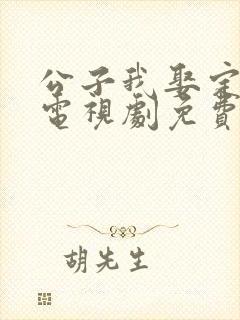 公子我娶定
電視劇免費
胡先生